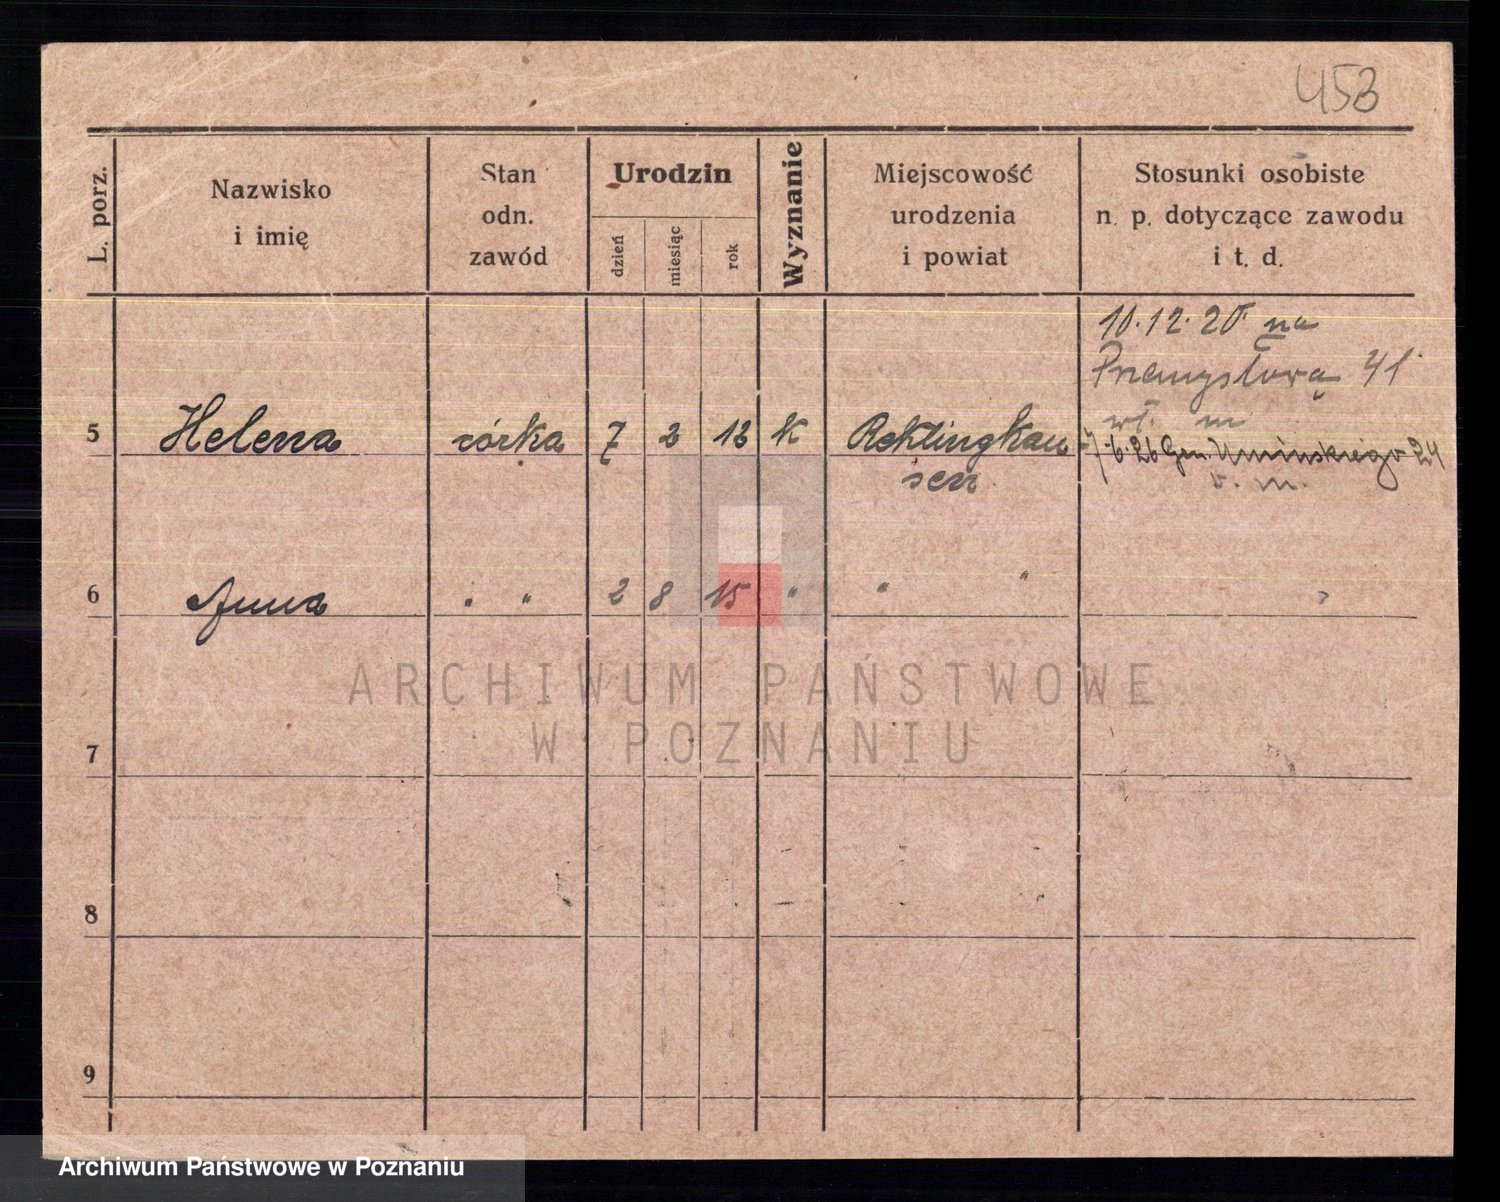 453
L. porz.
Nazwisko
i imię
Stan
odn.
zawód
Urodzin
dzień
miesiąc
rok
Wyznanie
Miejscowość
urodzenia
i powiat
Stosunki osobiste
n. p. dotyczące zawodu
i t. d.
10.12.25 na
Przemysłową 41
wł. m
5 Helena córka 7 2 12 K Reklingkau
sen
7.6.26 Gen. Umińskiego 24
v. m.
6 Anna " " 2 8 15 " " "
7
8
9
ARCHIWUM PAŃSTWOWE
W POZNANIU
Archiwum Państwowe w Poznaniu